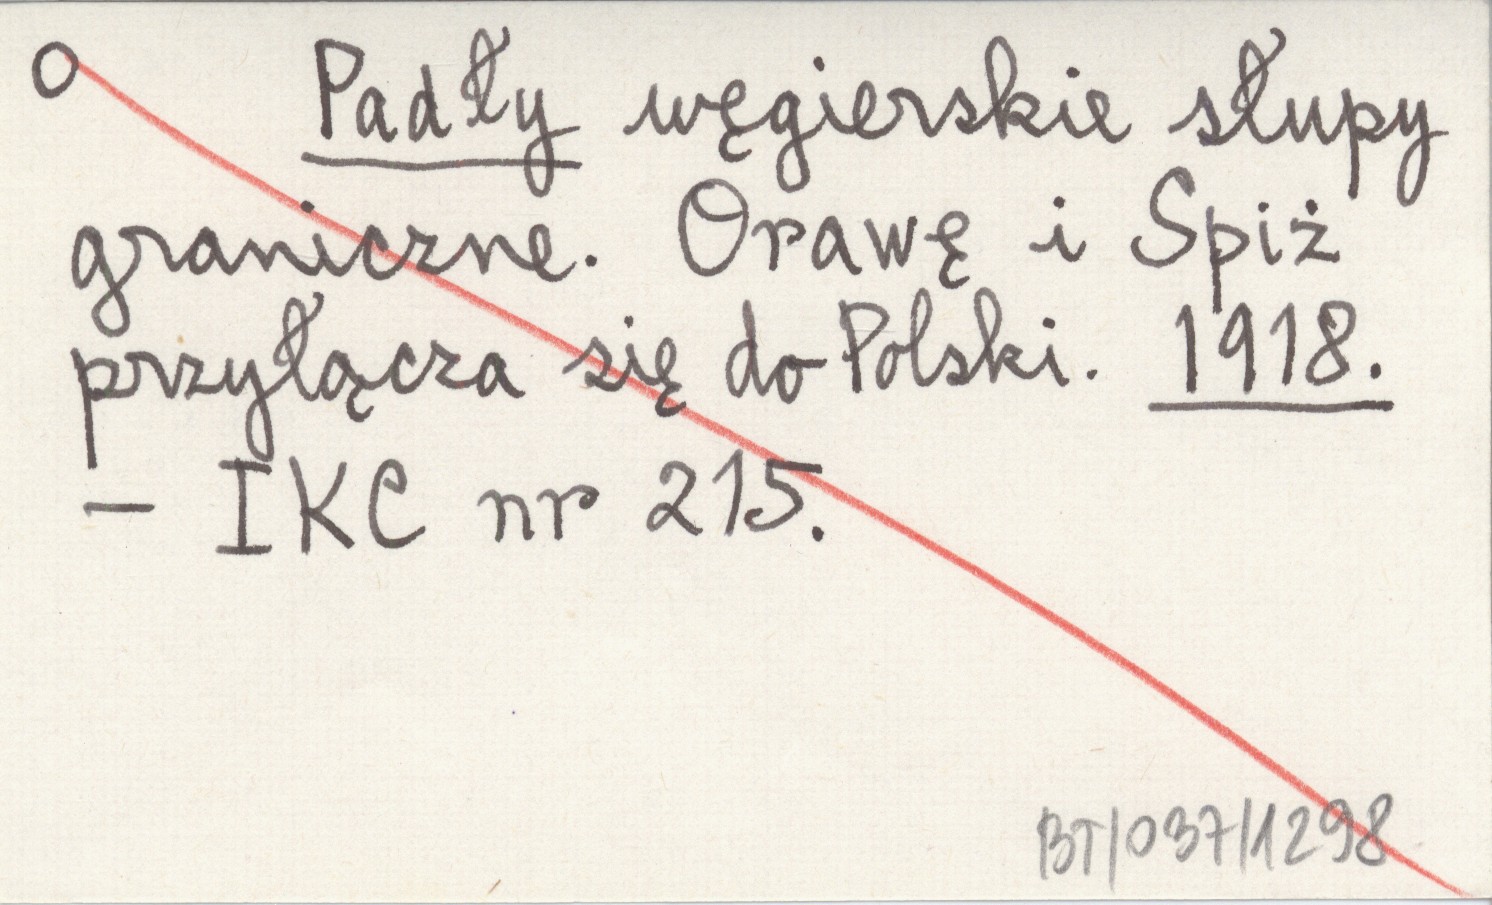 O Padły węgierskie słupy
graniczne. Orawę i Spiż
przyłącza się do Polski. 1918.
– IKC nr 215.
BT/037/1298